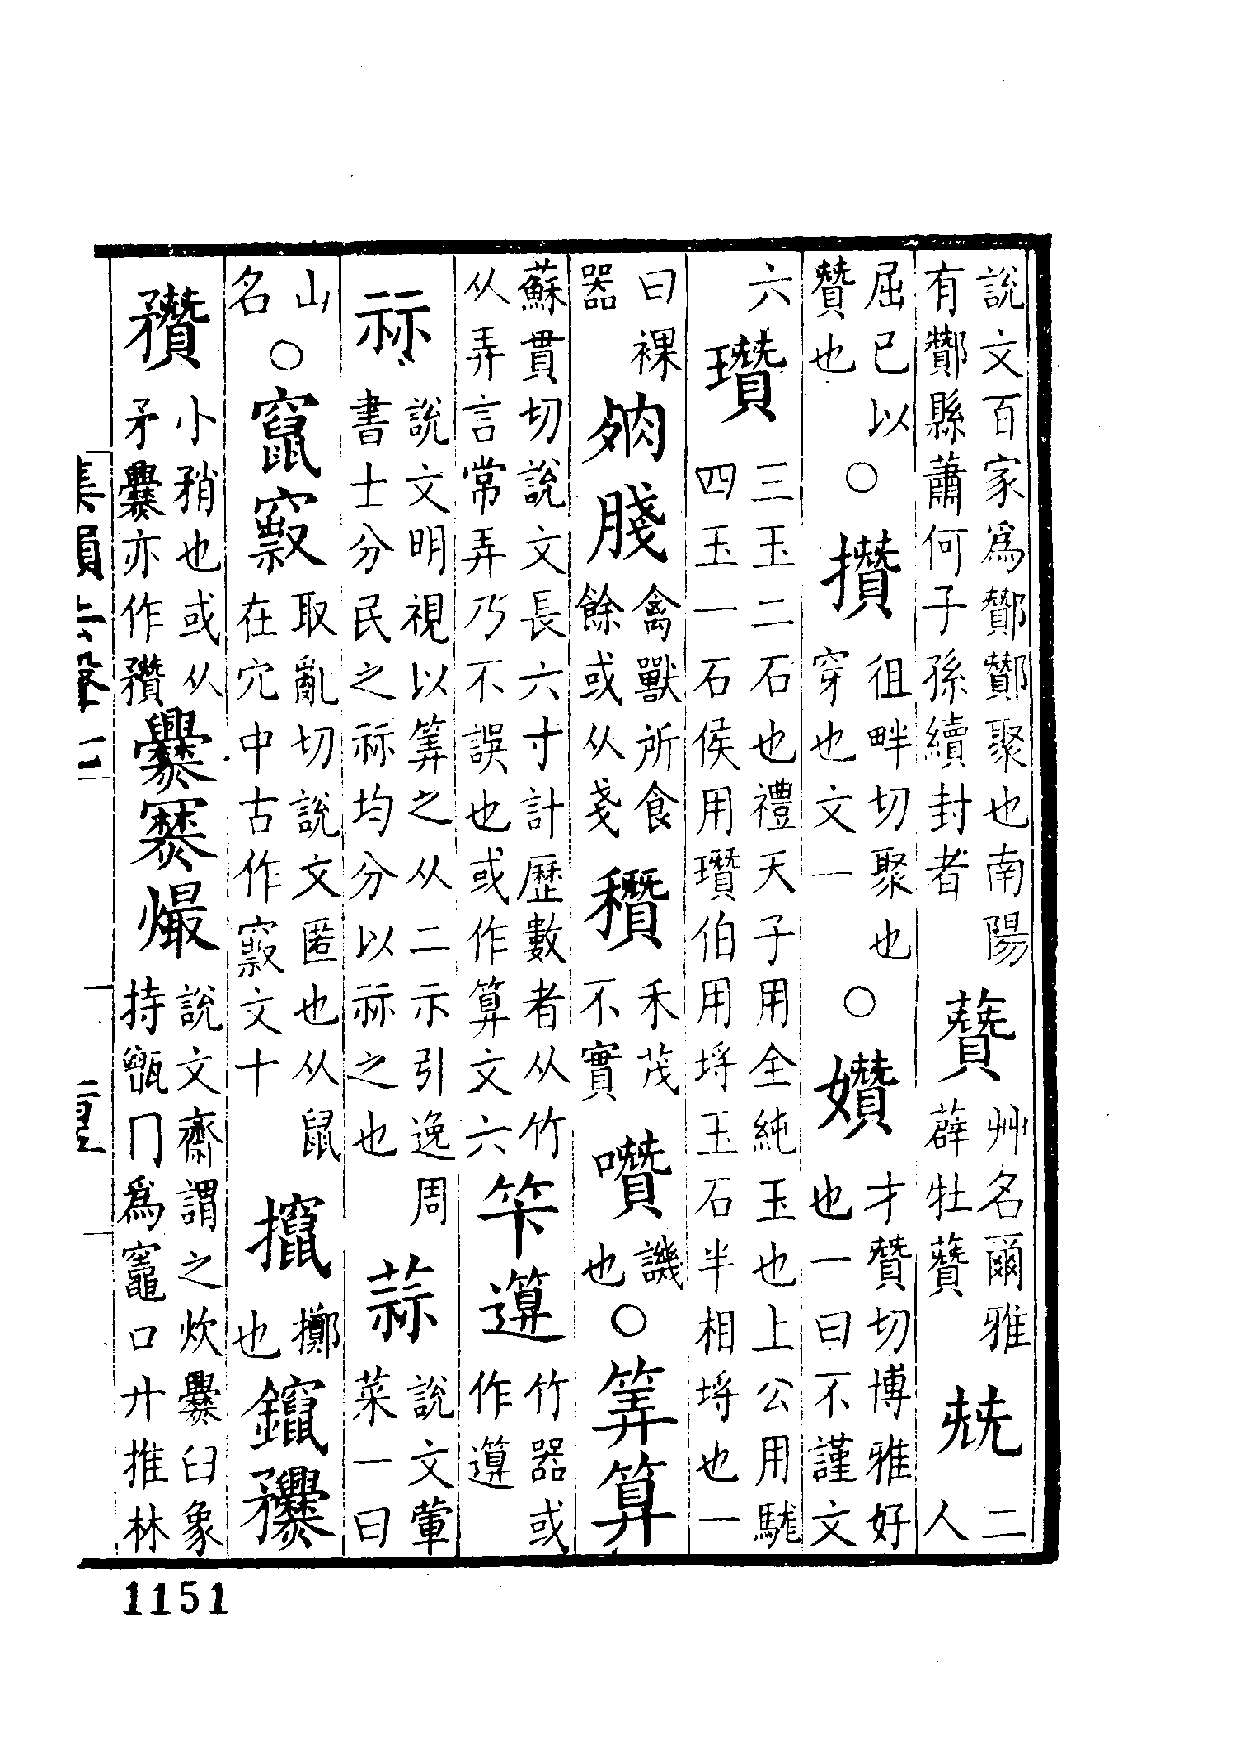 說文百家爲酇酇聚也南陽有酇縣蕭何子孫續封者 薋 艸名爾雅薜牡薋 兟 二人
屈已以贊也 ○ 攢 徂畔切聚也穿也文一 ○ 㜺 才贊切博雅好也一曰不謹文
六 瓚 三玉二石也禮天子用全純玉也上公用駹四玉一石侯用瓚伯用埒玉石半相埒也一
曰祼器 䏑 禽獸所食餘或从戔 穳 禾茂不實 囋 譏也 ○ 筭算
蘇貫切說文長六寸計歷數者从竹从弄言常弄乃不誤也或作算文六 竹器或作
祘 說文明視以筭之从二示引逸周書士分民之祘均分以祘之也 蒜 說文葷菜一曰
山名 ○ 竄 取亂切說文匿也从鼠在穴中古作文十 攛 擲也 鑹
矡 小矟也或从矛爨亦作穳 爨 說文齋謂之炊爨臼象持甑冂爲竈口廾推林
集韻去聲上
1151